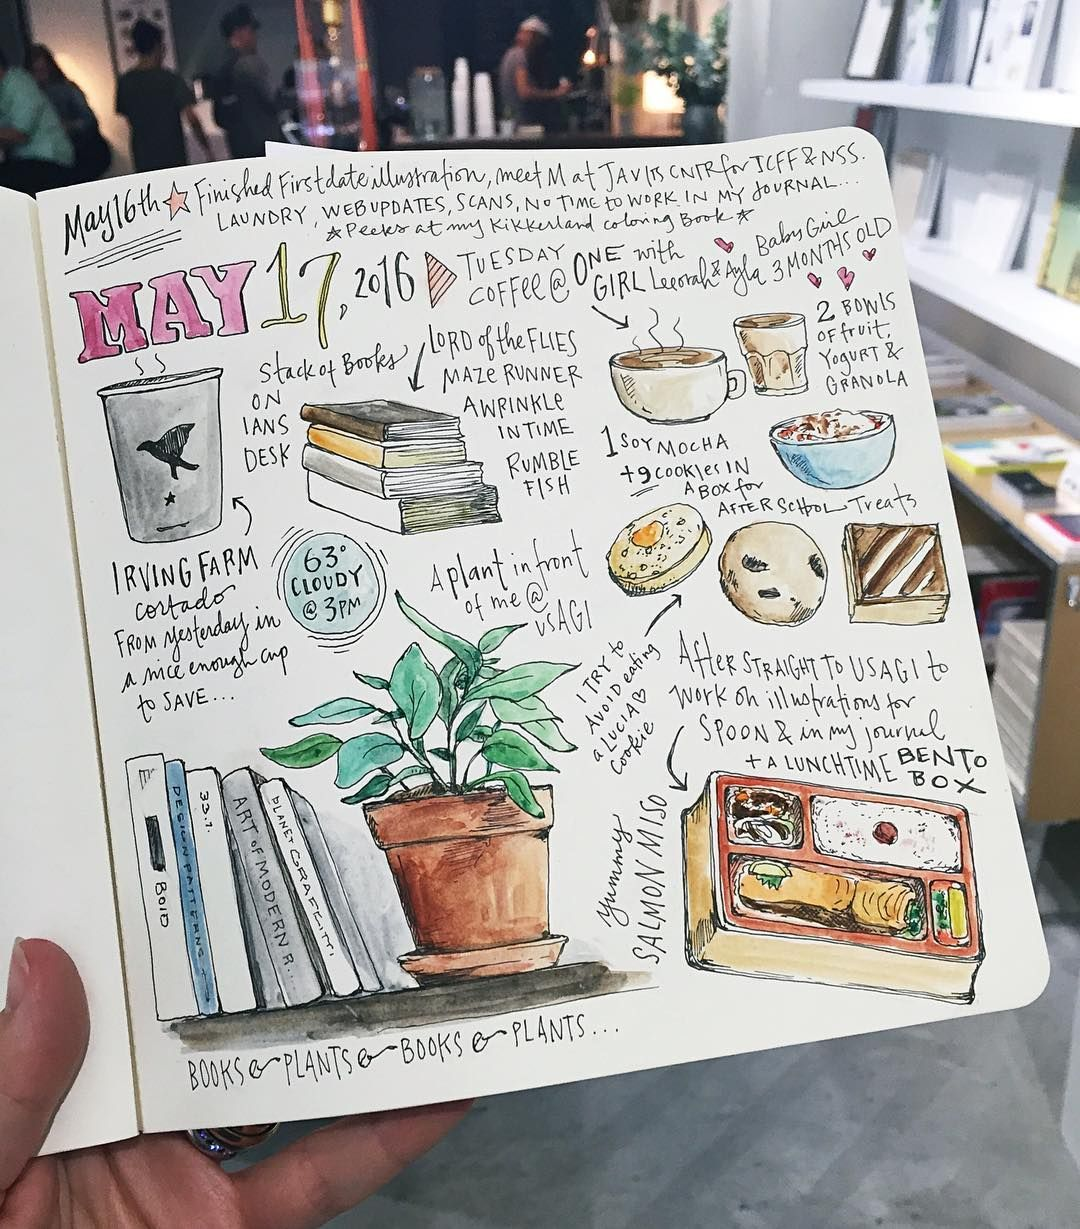 May 16th ★ Finished First date illustration, meet M at JAVITS CNTR for ICFF & NSS.
LAUNDRY, WEB UPDATES, SCANS, NO TIME to WORK IN MY JOURNAL...
★ Peeks at my Kikkerland coloring Book ★
MAY 17, 2016
TUESDAY
COFFEE @ ONE with
GIRL Leeorah & Ayla
Baby Girl
3 MONTHS OLD
2 BOWLS
OF fruit,
YOGURT &
GRANOLA
Stack of Books
ON
IANS
DESK
LORD of the FLIES
MAZE RUNNER
A WRINKLE
IN TIME
RUMBLE
FISH
1 SOY MOCHA
+ 9 COOKIES IN
A BOX for
AFTER SCHOOL Treats
IRVING FARM
cortado
FROM yesterday in
a nice enough cup
to SAVE...
63°
CLOUDY
@ 3PM
A plant in front
of me @
USAGI
I TRY to
AVOID eating
a LUCIA
Cookie
After STRAIGHT TO USAGI to
work on illustrations for
SPOON & in my journal
+ A LUNCHTIME BENTO
BOX
Yummy
SALMON MISO
BOID
DESIGN PATTERNS
33.1.
ART of MODERN R..
PLANET GRAFFITI.
BOOKS & PLANTS & BOOKS & PLANTS...